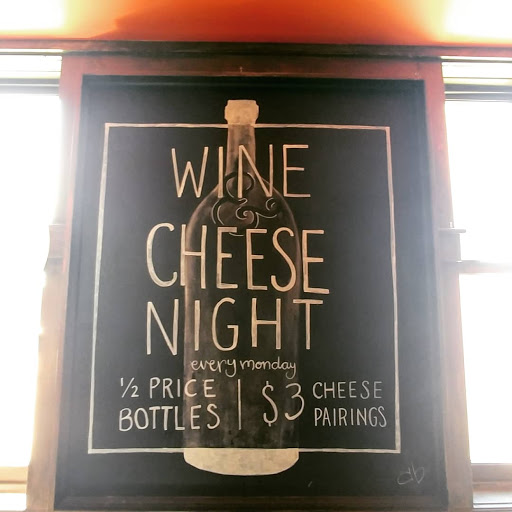 WINE
&
CHEESE
NIGHT
every monday
½ PRICE BOTTLES | $3 CHEESE PAIRINGS
db